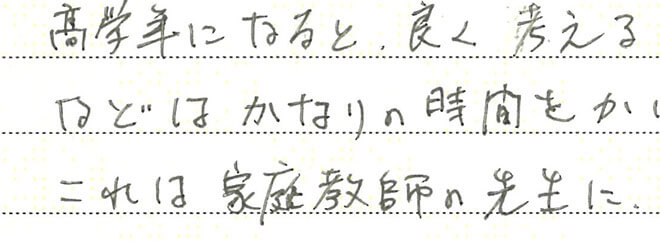 高学年になると、良く考える
などはかなりの時間をか
これは家庭教師の先生に、